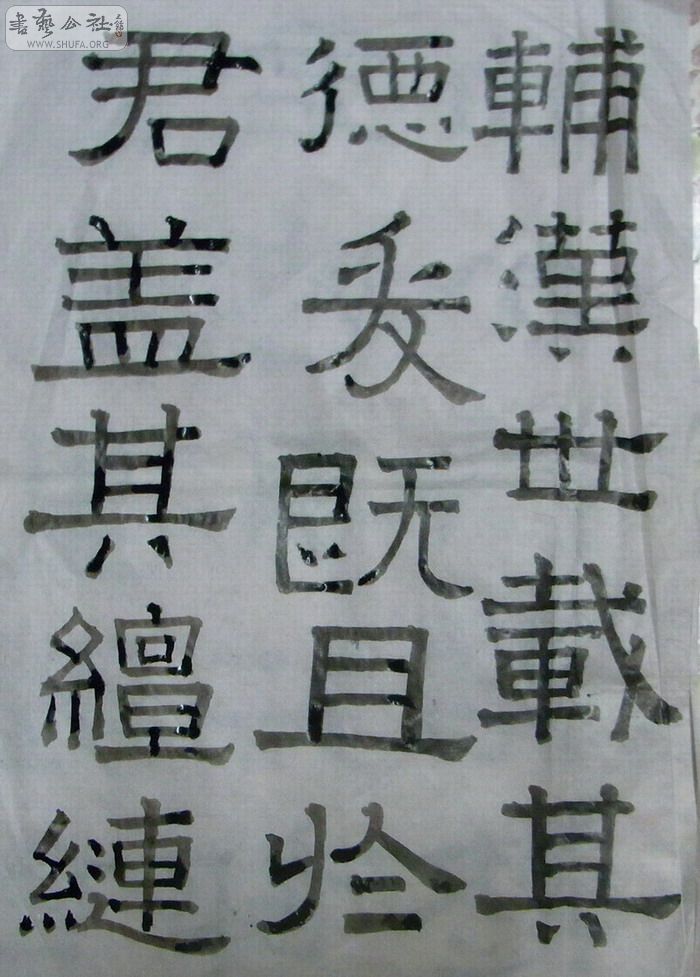 輔漢世載其
德爰既且於
君盖其繵縺
書藝公社
WWW.SHUFA.ORG